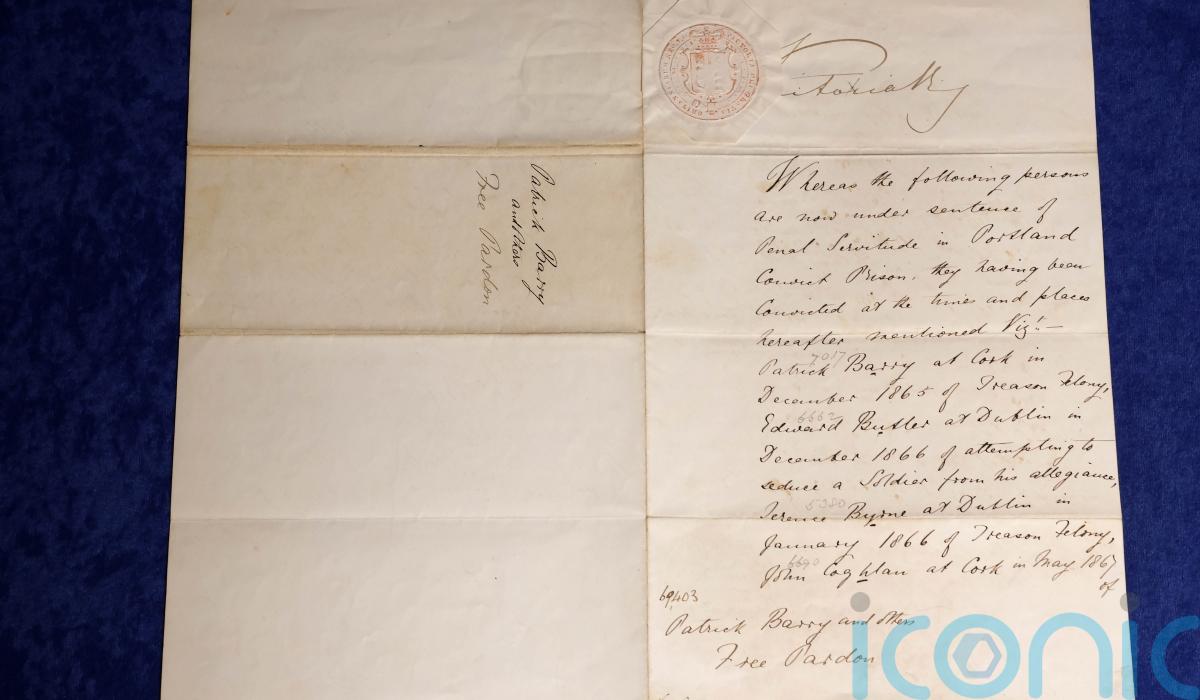 Patrick Barry
and Others
Free Pardon
Victoria R
Whereas the following persons
are now under sentence of
Penal Servitude in Portland
Convict Prison, they having been
Convicted at the times and places
hereafter mentioned Vizt.—
7017
Patrick Barry at Cork in
December 1865 of Treason Felony,
6662
Edward Butler at Dublin in
December 1866 of attempting to
seduce a Soldier from his allegiance,
5380
Terence Byrne at Dublin in
January 1866 of Treason Felony,
6690
John Coghlan at Cork in May 1867
of
69,403
Patrick Barry and others
Free Pardon
iconic